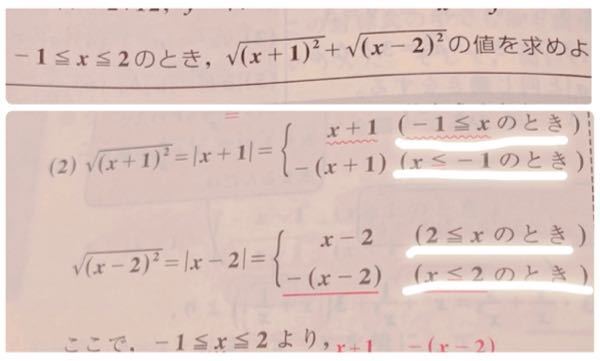 -1≦x≦2のとき，√(x+1)²+√(x-2)²の値を求めよ
(2) √(x+1)²=|x+1|={ x+1 (-1≦xのとき)
-(x+1) (x≦-1のとき)
√(x-2)²=|x-2|={ x-2 (2≦xのとき)
-(x-2) (x≦2のとき)
ここで，-1≦x≦2より， x+1 -(x-2)